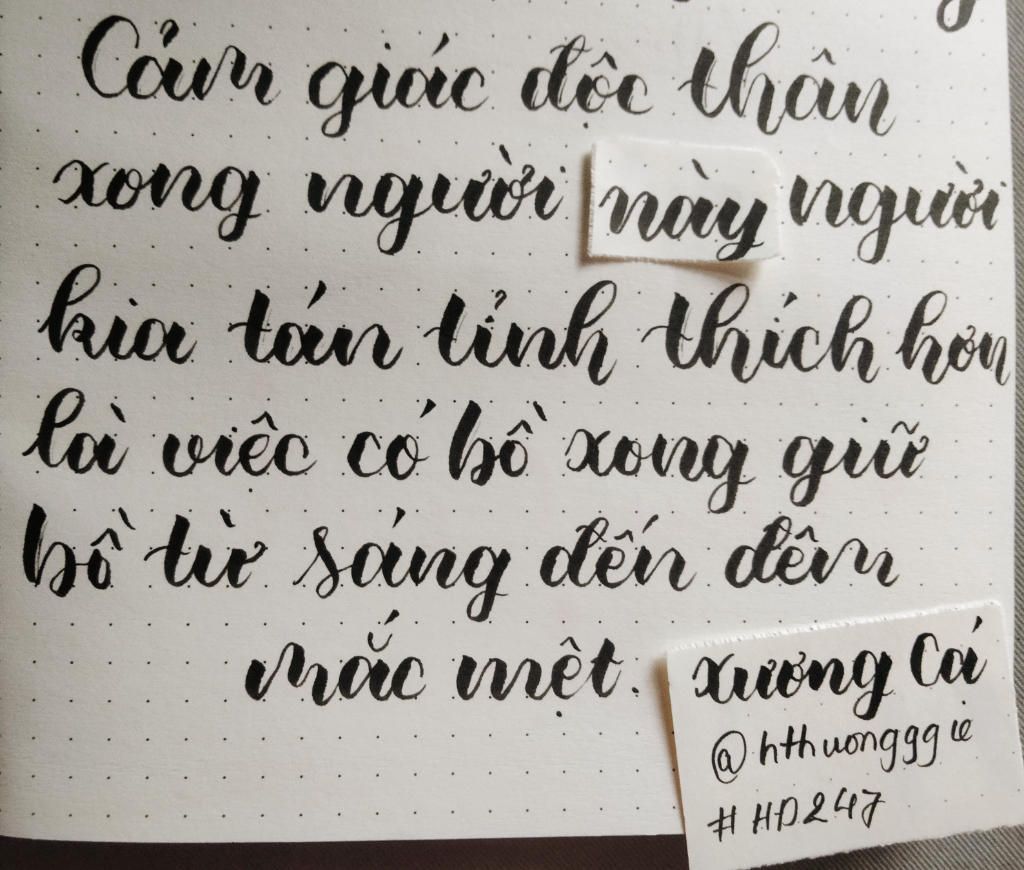 Cảm giác độc thân
xong người này người
kia tán tỉnh thích hơn
là việc có bồ xong giữ
bồ từ sáng đến đêm
mắc mệt.
xương Cá
@hthuongggie
#HD247